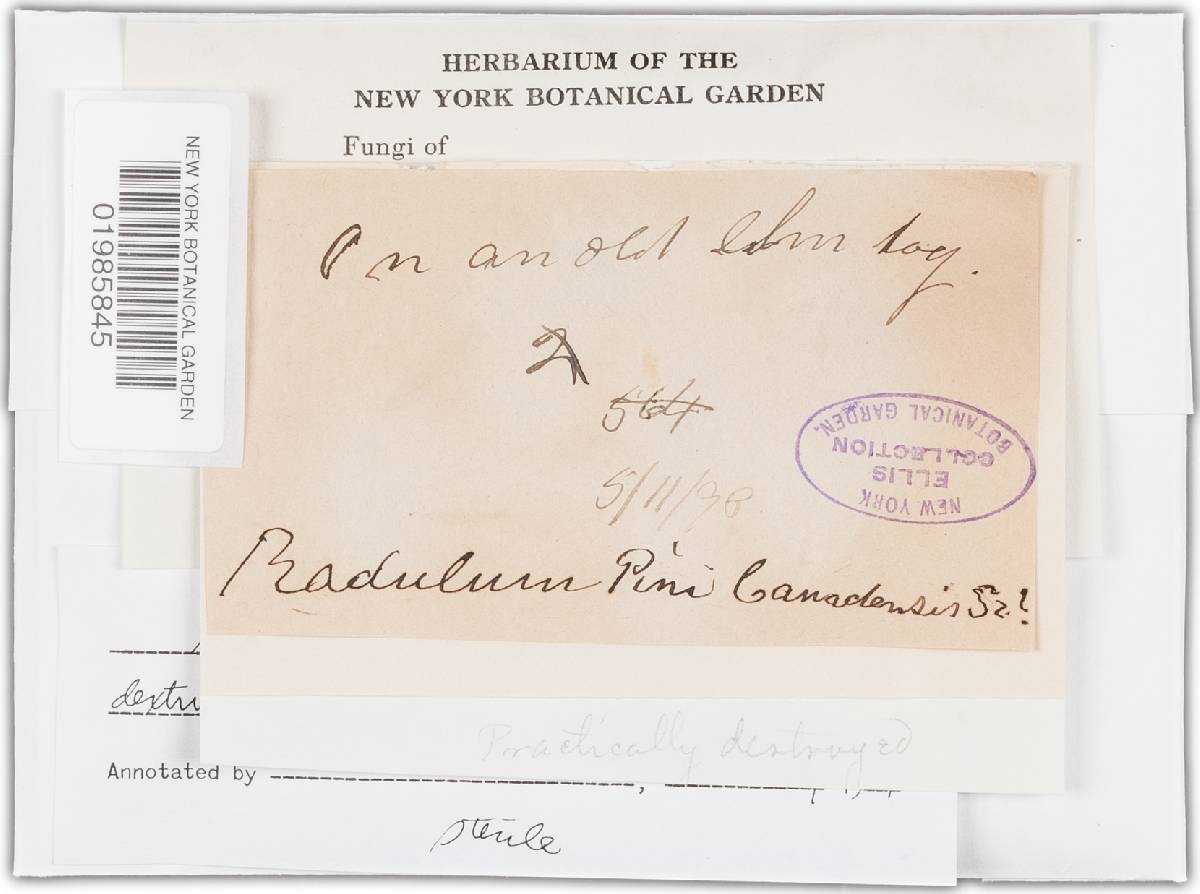 HERBARIUM OF THE
NEW YORK BOTANICAL GARDEN
Fungi of
NEW YORK BOTANICAL GARDEN
01985845
On an old elm log.
564
5/11/98
NEW YORK
ELLIS
COLLECTION
BOTANICAL GARDEN.
Radulum Pini Canadensis Sz?
Practically destroyed
dextri
Annotated by
sterile